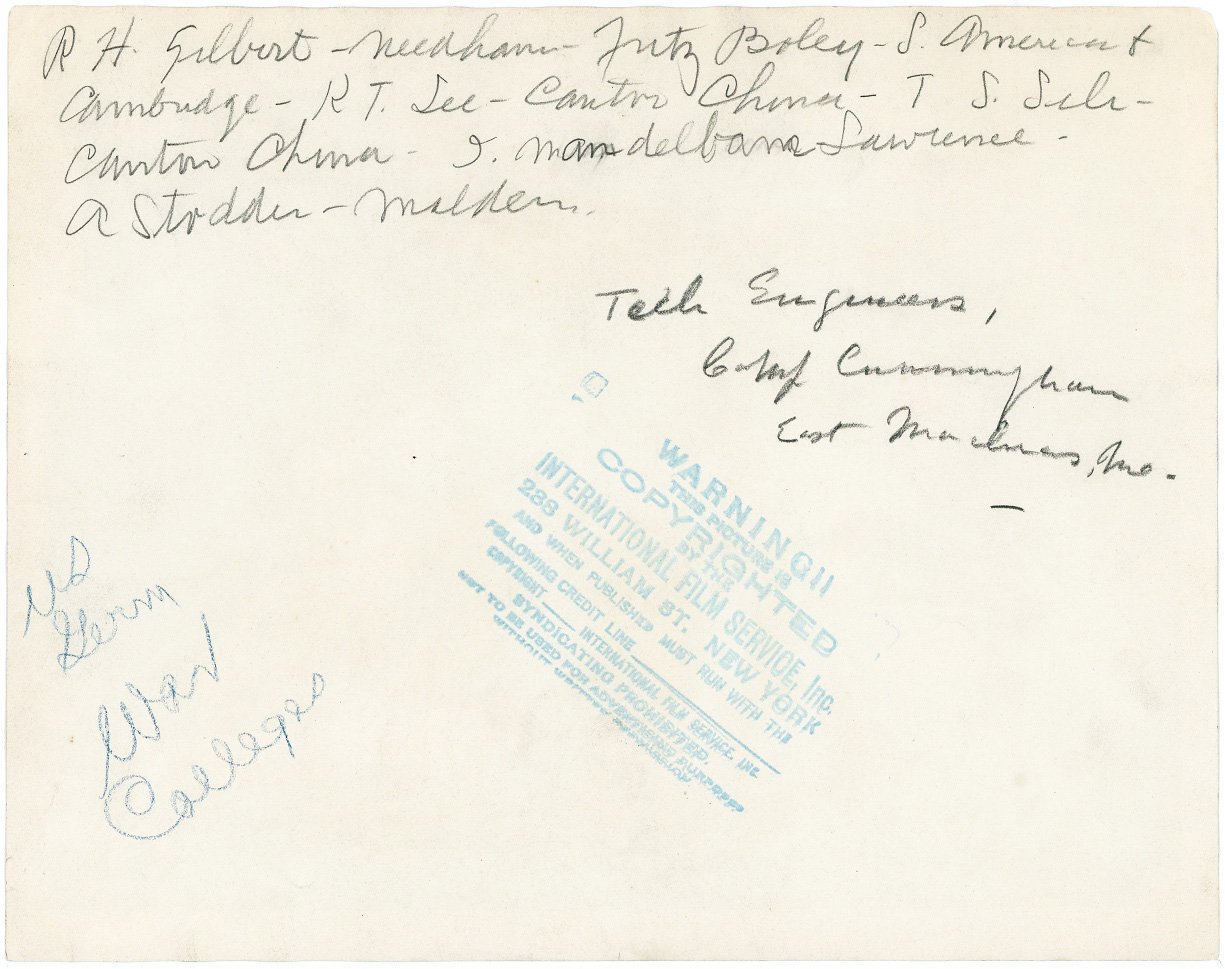 R H. Gilbert - Needham - Fritz Boley - S. America &
Cambridge - R T. See - Canton China - T S. 
Canton China - I. Mandelbam - Lawrence -
A Stodder - Malden.
Tech Engineers,
Camp Cunningham
East Machias, Me. -
WARNING!!
THIS PICTURE IS
COPYRIGHTED
BY THE
INTERNATIONAL FILM SERVICE, Inc.
238 WILLIAM ST. NEW YORK
AND WHEN PUBLISHED MUST RUN WITH THE
FOLLOWING CREDIT LINE
COPYRIGHT INTERNATIONAL FILM SERVICE, INC.
SYNDICATING PROHIBITED.
NOT TO BE USED FOR ADVERTISING PURPOSES
WITHOUT WRITTEN PERMISSION
US
Germ
War
Colleges